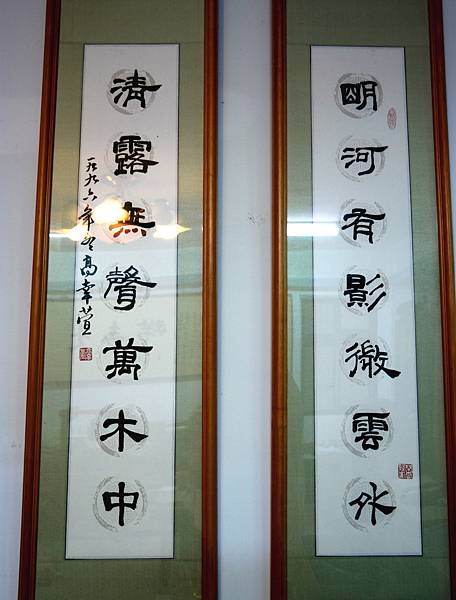 明河有影微雲外
清露無聲萬木中
一九九六年冬高幸萱